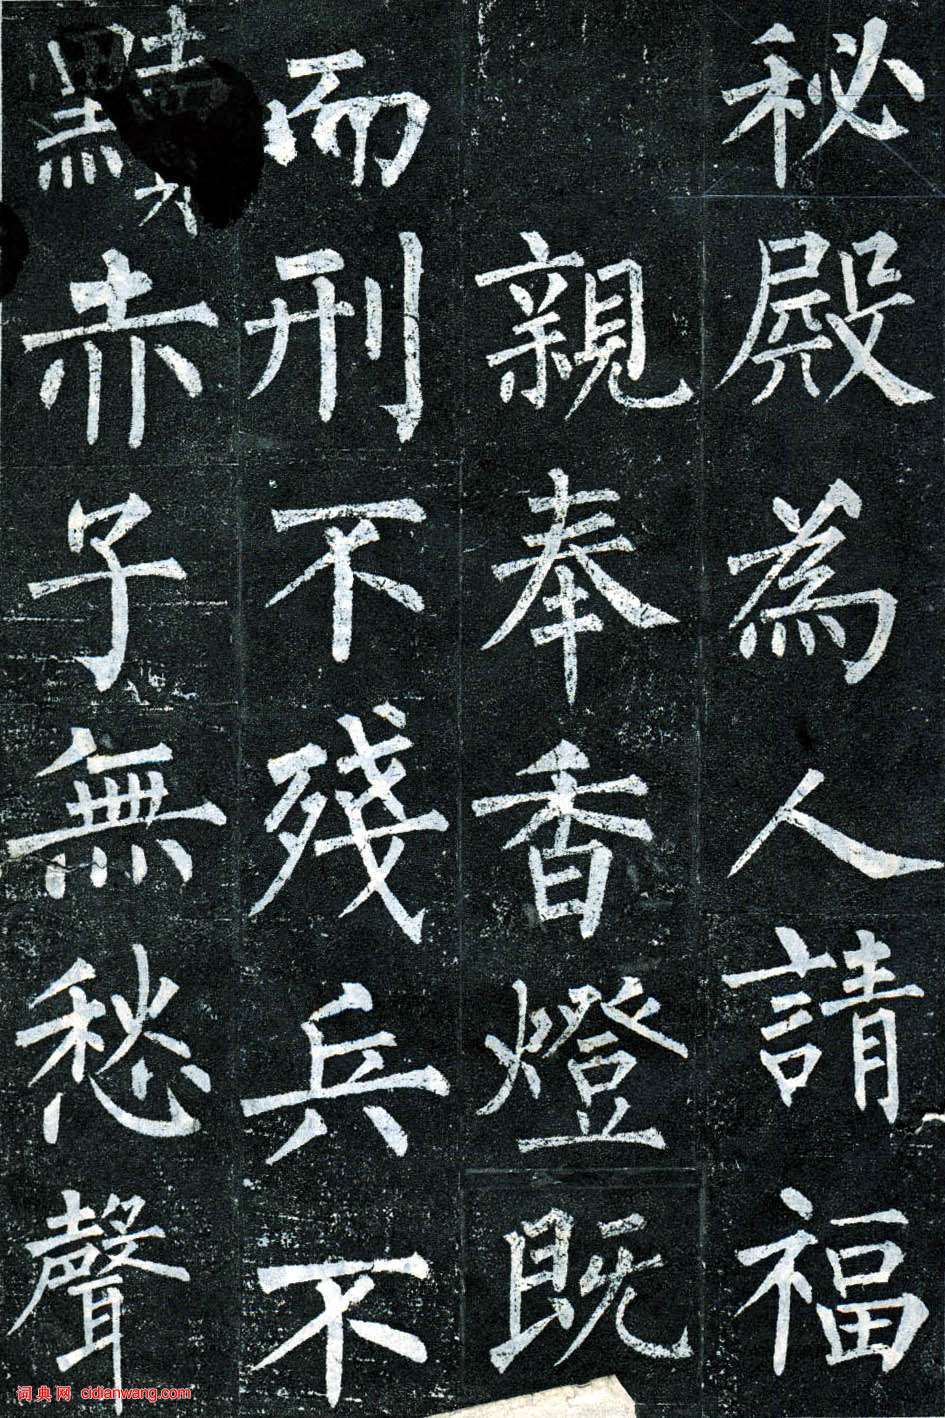 秘殿為人請福
親奉香燈既
而刑不殘兵不
黷赤子無愁聲
词典网 cidianwang.com